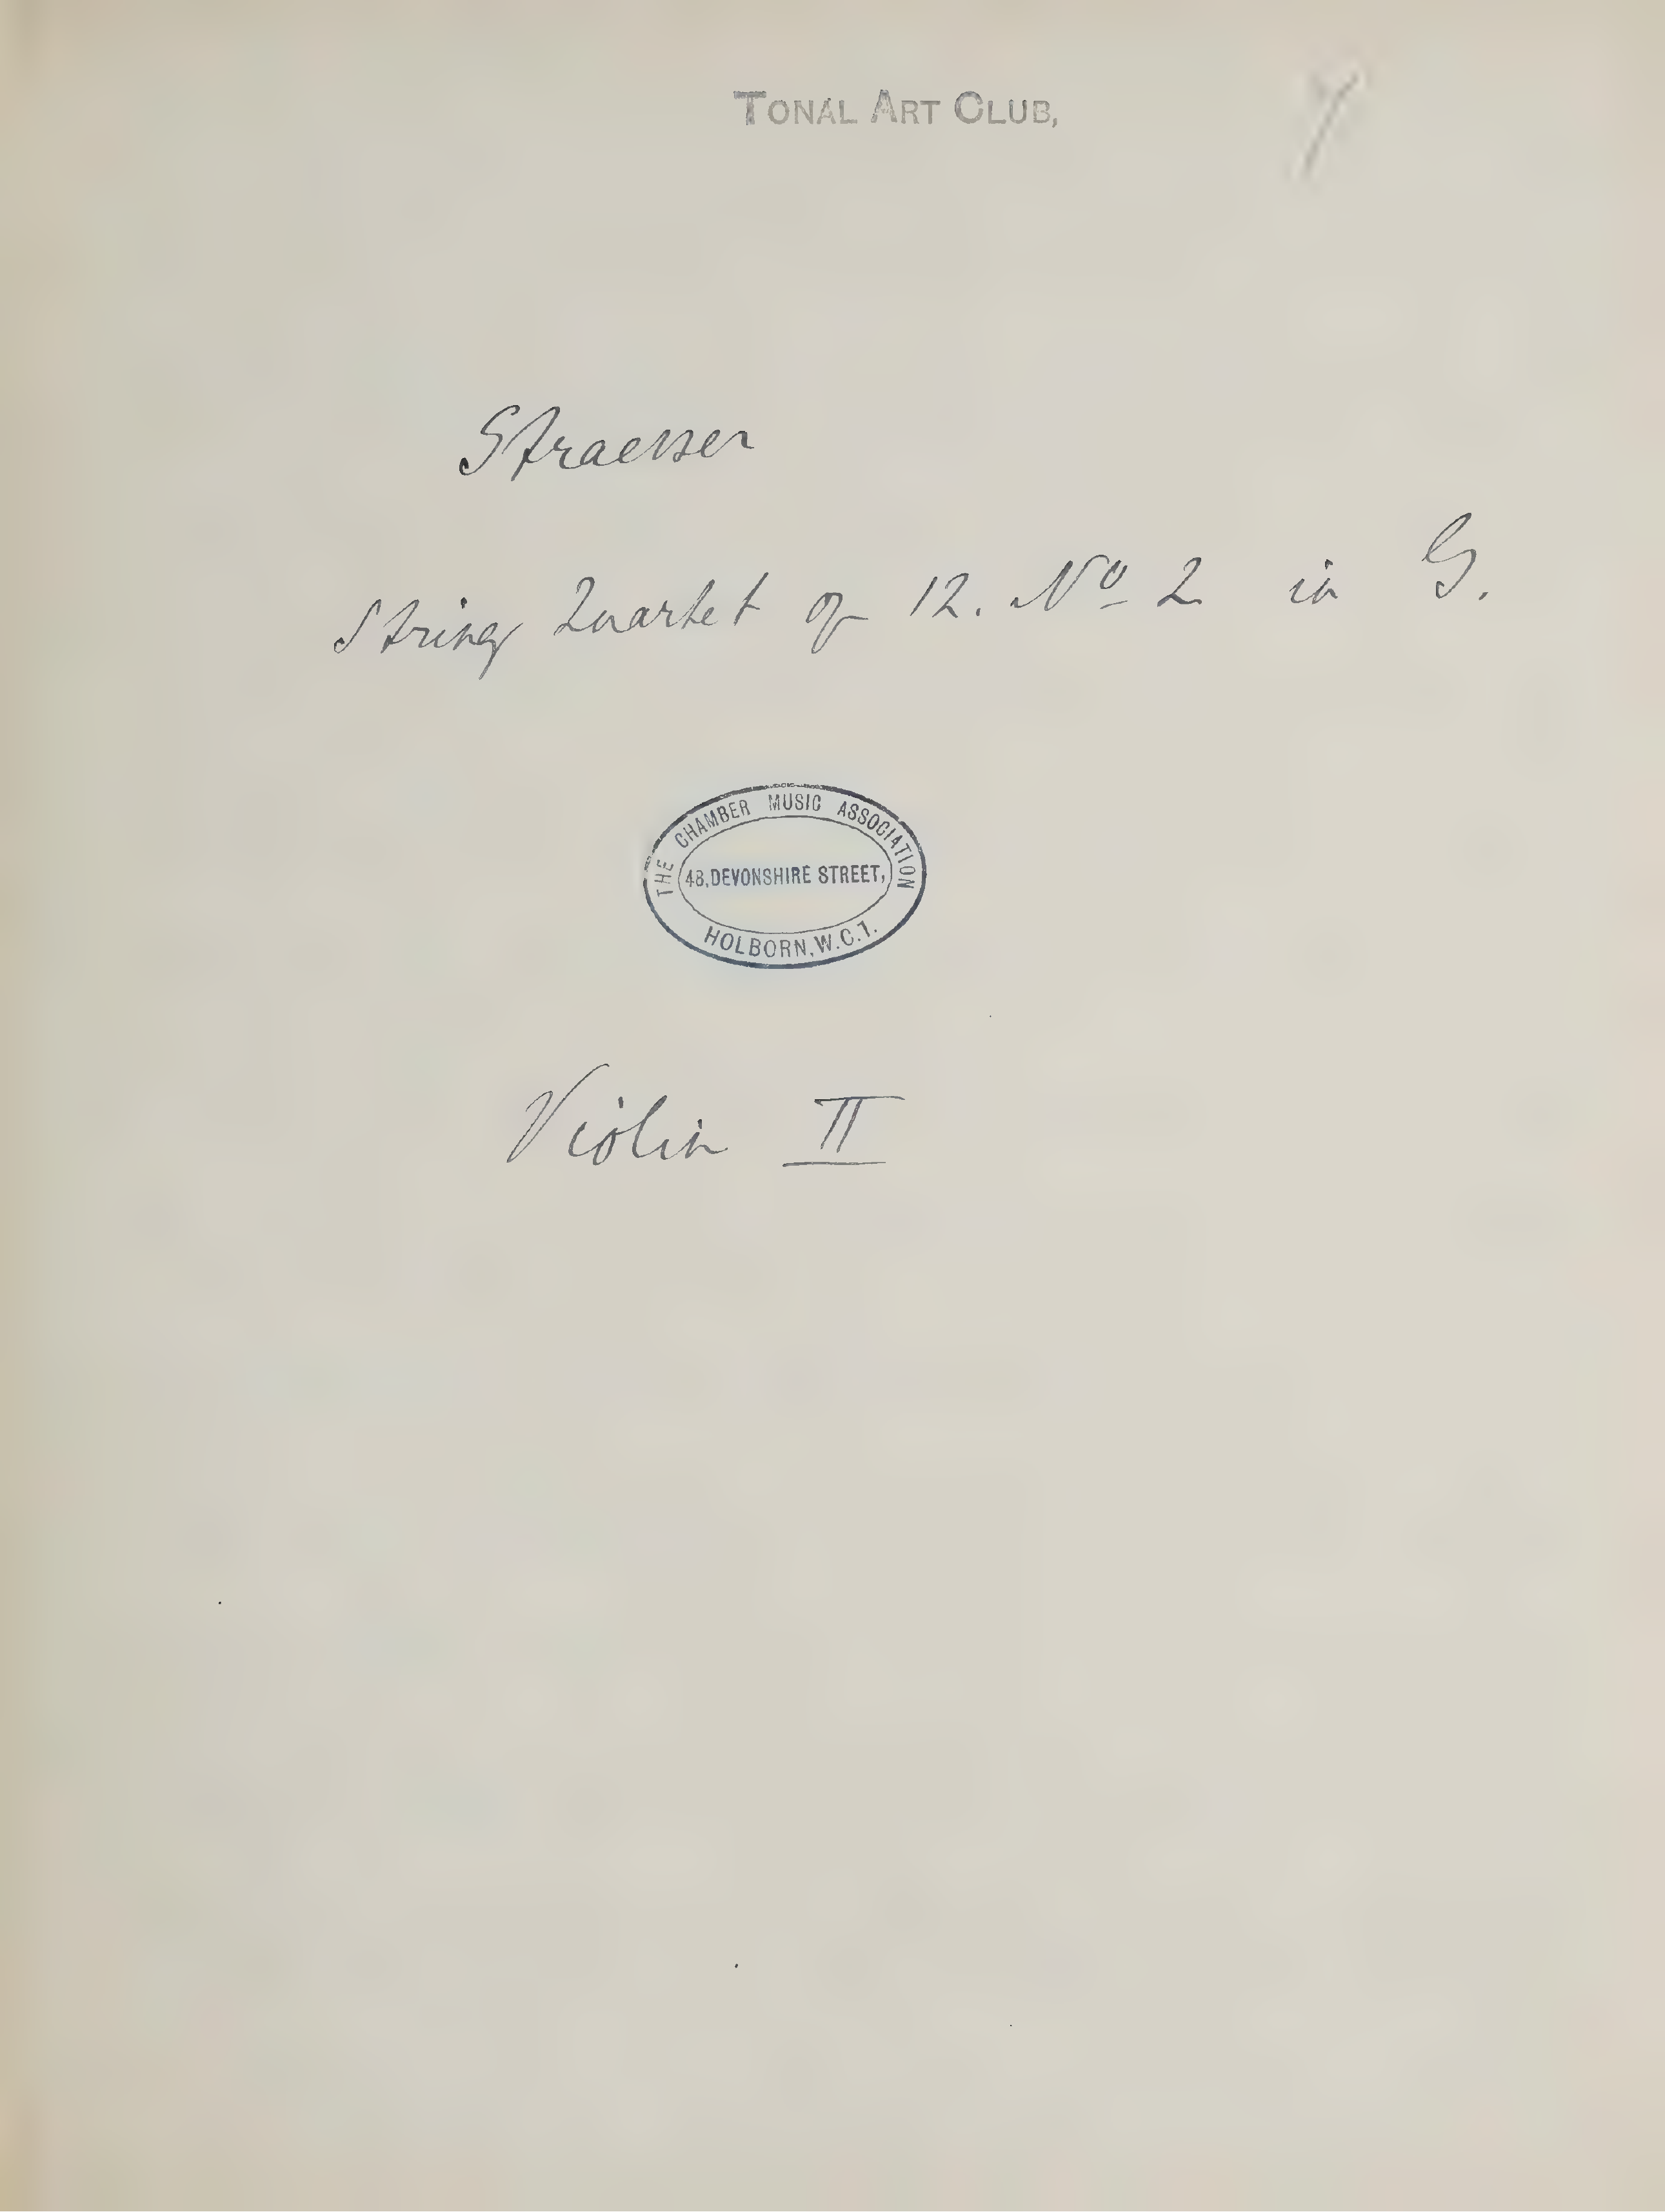 TONAL ART CLUB,
Straesser
String Quartet op 12. No 2 in G.
THE CHAMBER MUSIC ASSOCIATION
48, DEVONSHIRE STREET,
HOLBORN, W.C.1.
Violin II